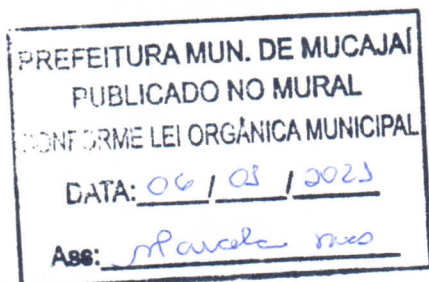 PREFEITURA MUN. DE MUCAJAÍ
PUBLICADO NO MURAL
CONFORME LEI ORGÂNICA MUNICIPAL
DATA: 06 / 01 / 2021
Ass: Marcela